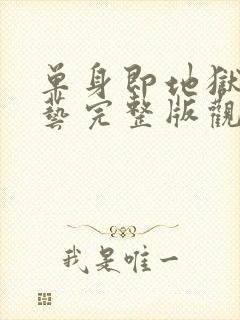 单身即地獄
藝完整版觀
我是唯一